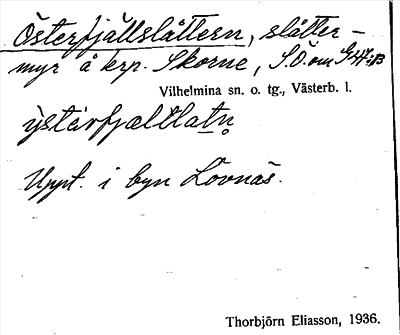 Österfjällslåttern, slåtter-
myr å krp. Skorne, S.Ö. om G47:13
Vilhelmina sn. o. tg., Västerb. l.
Uppt. i byn Lövnäs.
Thorbjörn Eliasson, 1936.